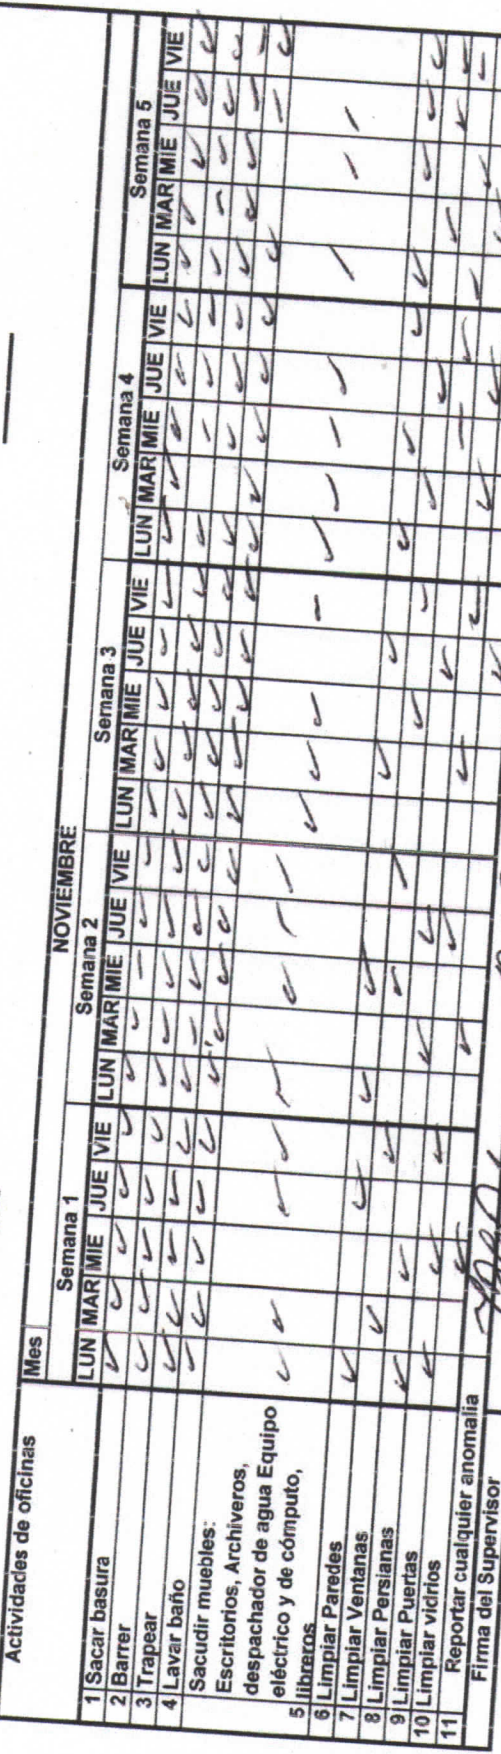 Actividades de oficinas
Mes
NOVIEMBRE
Semana 1 Semana 2 Semana 3 Semana 4 Semana 5
LUN MAR MIE JUE VIE LUN MAR MIE JUE VIE LUN MAR MIE JUE VIE LUN MAR MIE JUE VIE LUN MAR MIE JUE VIE
1 Sacar basura
2 Barrer
3 Trapear
4 Lavar baño
Sacudir muebles:
Escritorios, Archiveros,
despachador de agua Equipo
eléctrico y de cómputo,
5 libreros
6 Limpiar Paredes
7 Limpiar Ventanas
8 Limpiar Persianas
9 Limpiar Puertas
10 Limpiar vidrios
11 Reportar cualquier anomalia
Firma del Supervisor